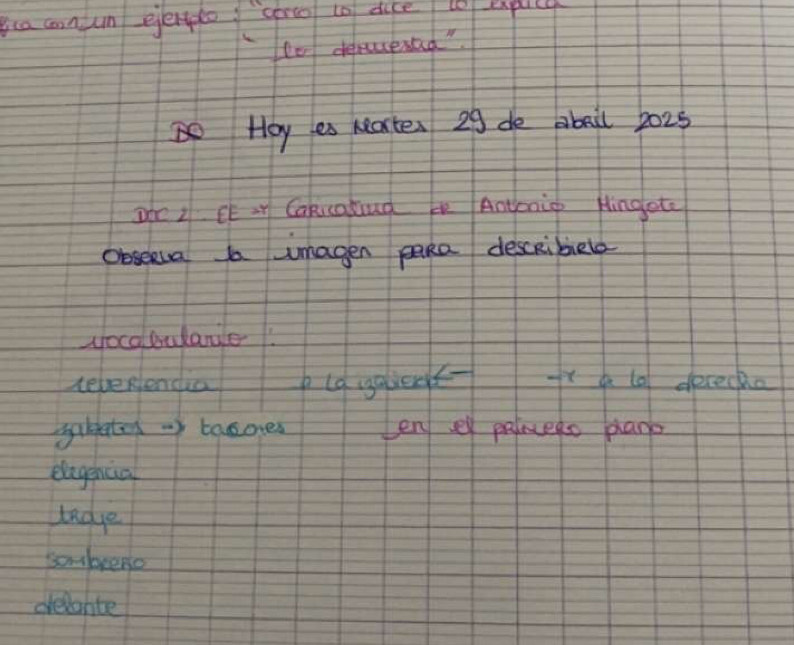 con un ejemplo : "como lo dice lo explica
"lo demuestra".
Hoy es Martes 29 de abril 2025
Doc 2 EE → Caricatura de Antonio Mingote
Observa la imagen para describirla
vocabulario :
reverencia a la izquierda ← → a la derecha
zapatos → tacones en el primero plano
elegencia
traje
sombrero
delante